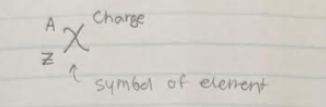 A X Charge
Z
symbol of element